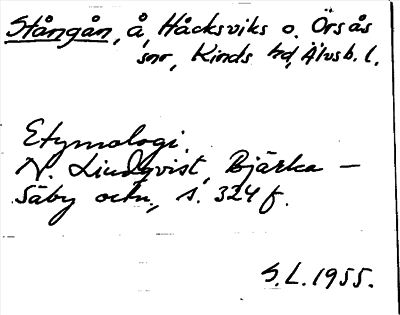 Stångån, å, Håcksviks o. Örsås
snr, Kinds hd, Älvsb. l.
Etymologi.
N. Lindqvist, Bjärka –
Säby ortn., s. 324 f.
S.L. 1955.